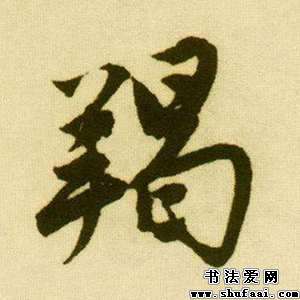 羯
书法爱网
www.shufaai.com